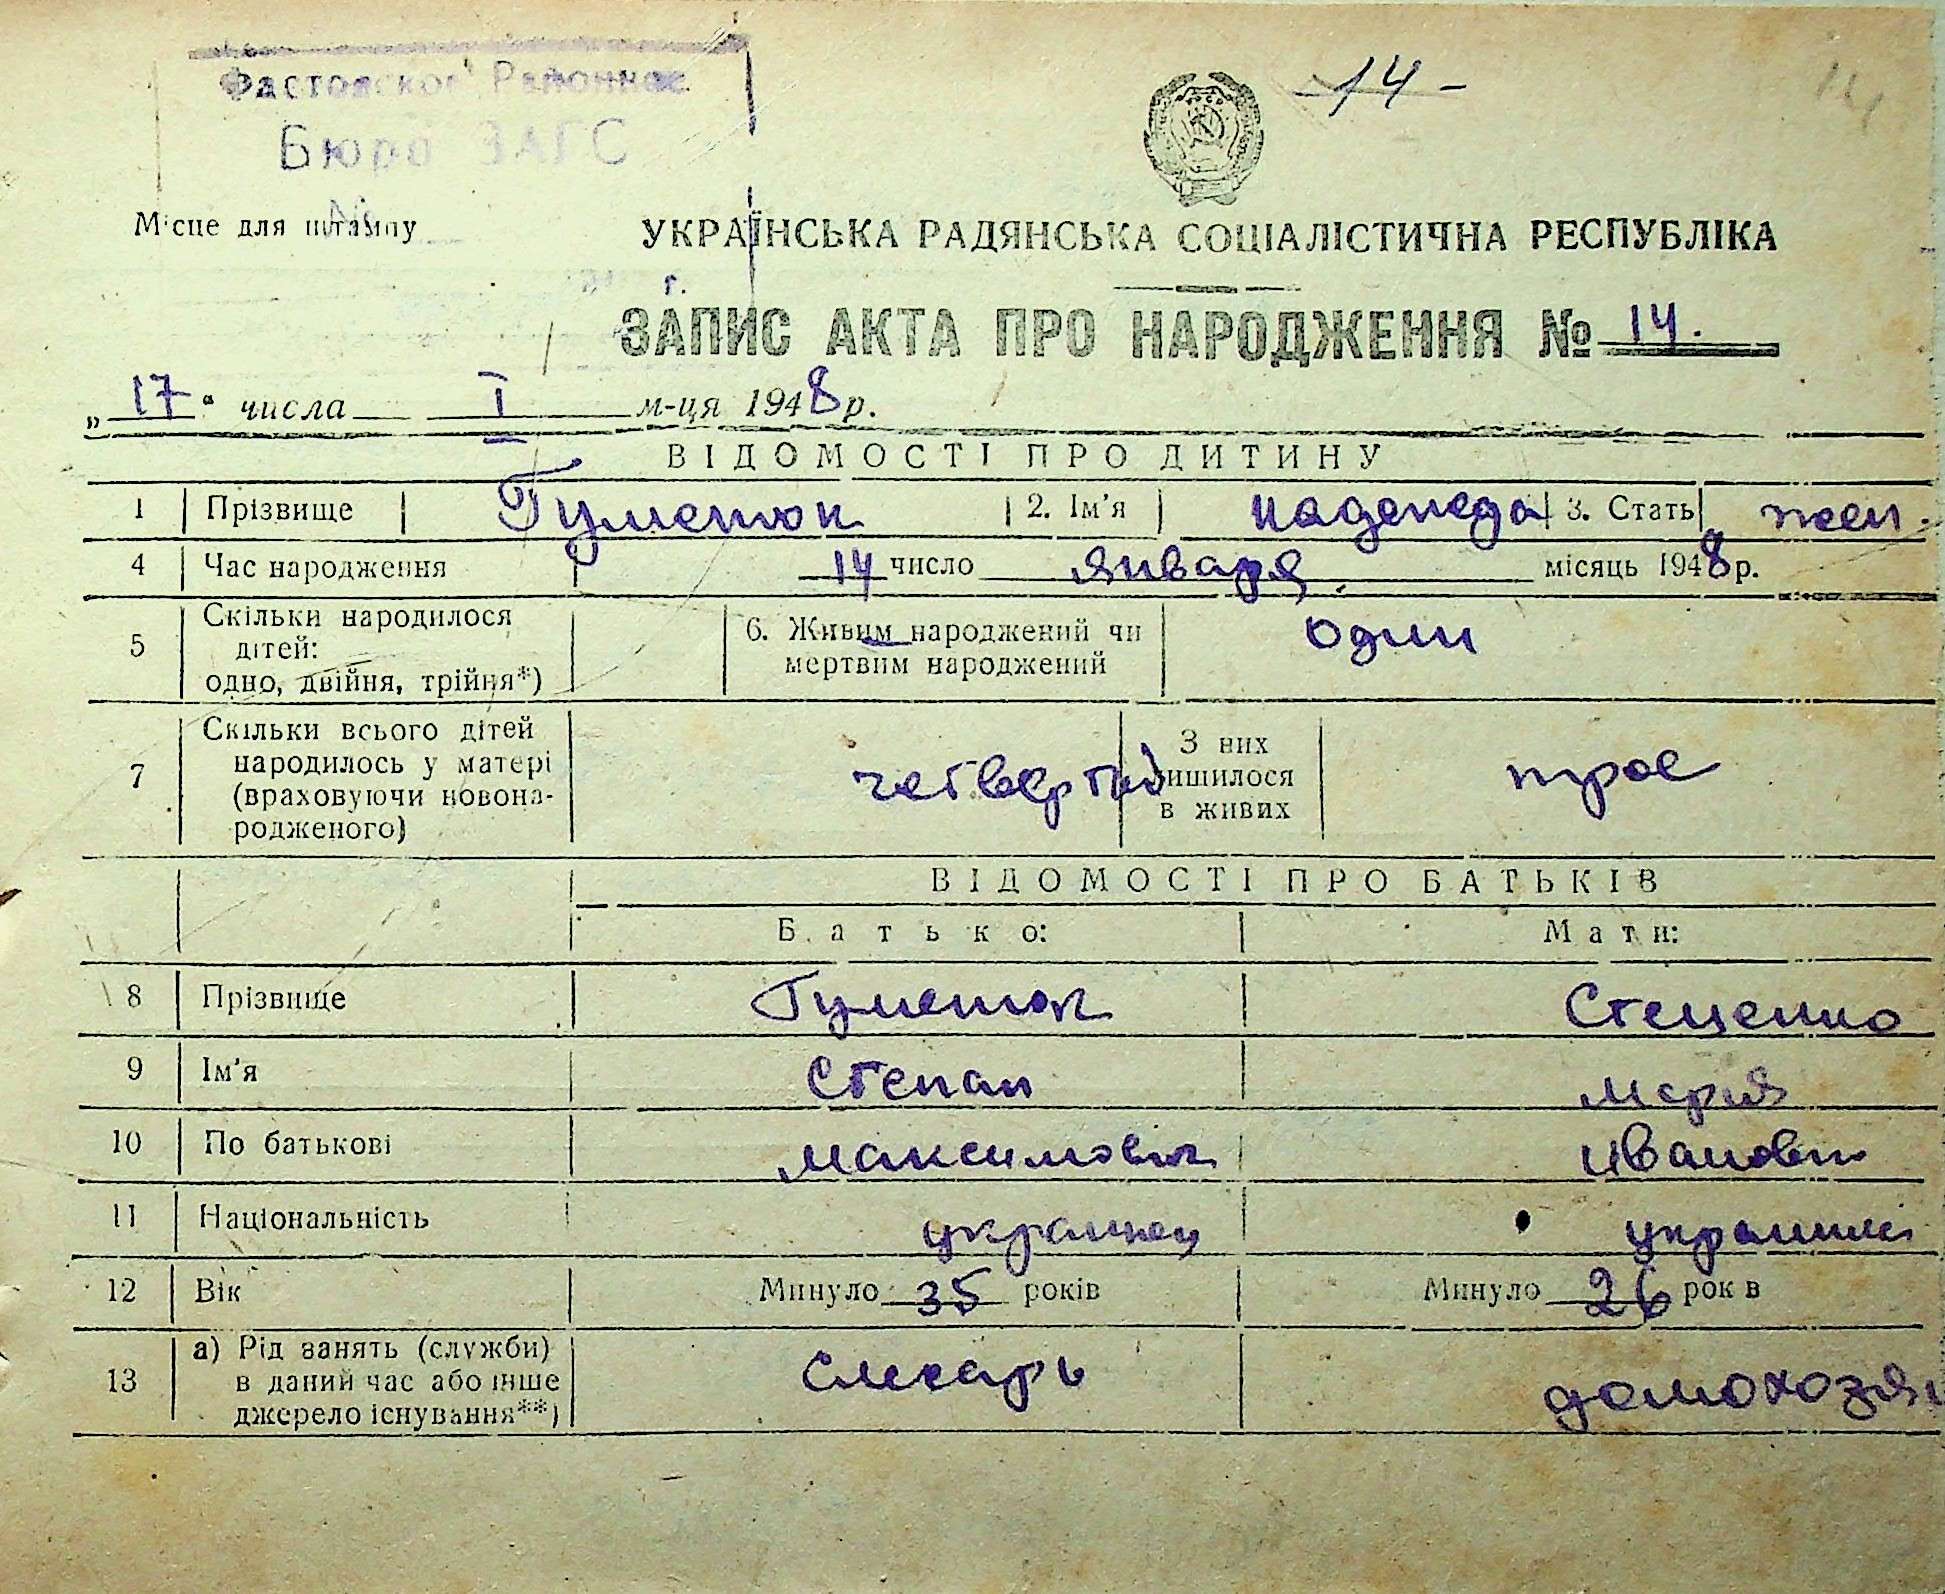 Фастовское Районное
Бюро ЗАГС
№
Місце для штампу
г.
-14-
14
УКРАЇНСЬКА РАДЯНСЬКА СОЦІАЛІСТИЧНА РЕСПУБЛІКА
ЗАПИС АКТА ПРО НАРОДЖЕННЯ № 14.
„17“ числа I м-ця 1948 р.
ВІДОМОСТІ ПРО ДИТИНУ
1 Прізвище Гуменюк 2. Ім'я Надежда 3. Стать жен.
4 Час народження 14 число января місяць 1948 р.
5 Скільки народилося дітей: одно, двійня, трійня*) 6. Живим народжений чи мертвим народжений один
7 Скільки всього дітей народилось у матері (враховуючи новонародженого) четвертий З них лишилося в живих трое
ВІДОМОСТІ ПРО БАТЬКІВ
Батько: Мати:
8 Прізвище Гуменюк Стеценко
9 Ім'я Степан Мария
10 По батькові Максимович Ивановн
11 Національність украинец украинк
12 Вік Минуло 35 років Минуло 26 років
13 а) Рід занять (служби) в даний час або інше джерело існування**) Слесарь домохозяй